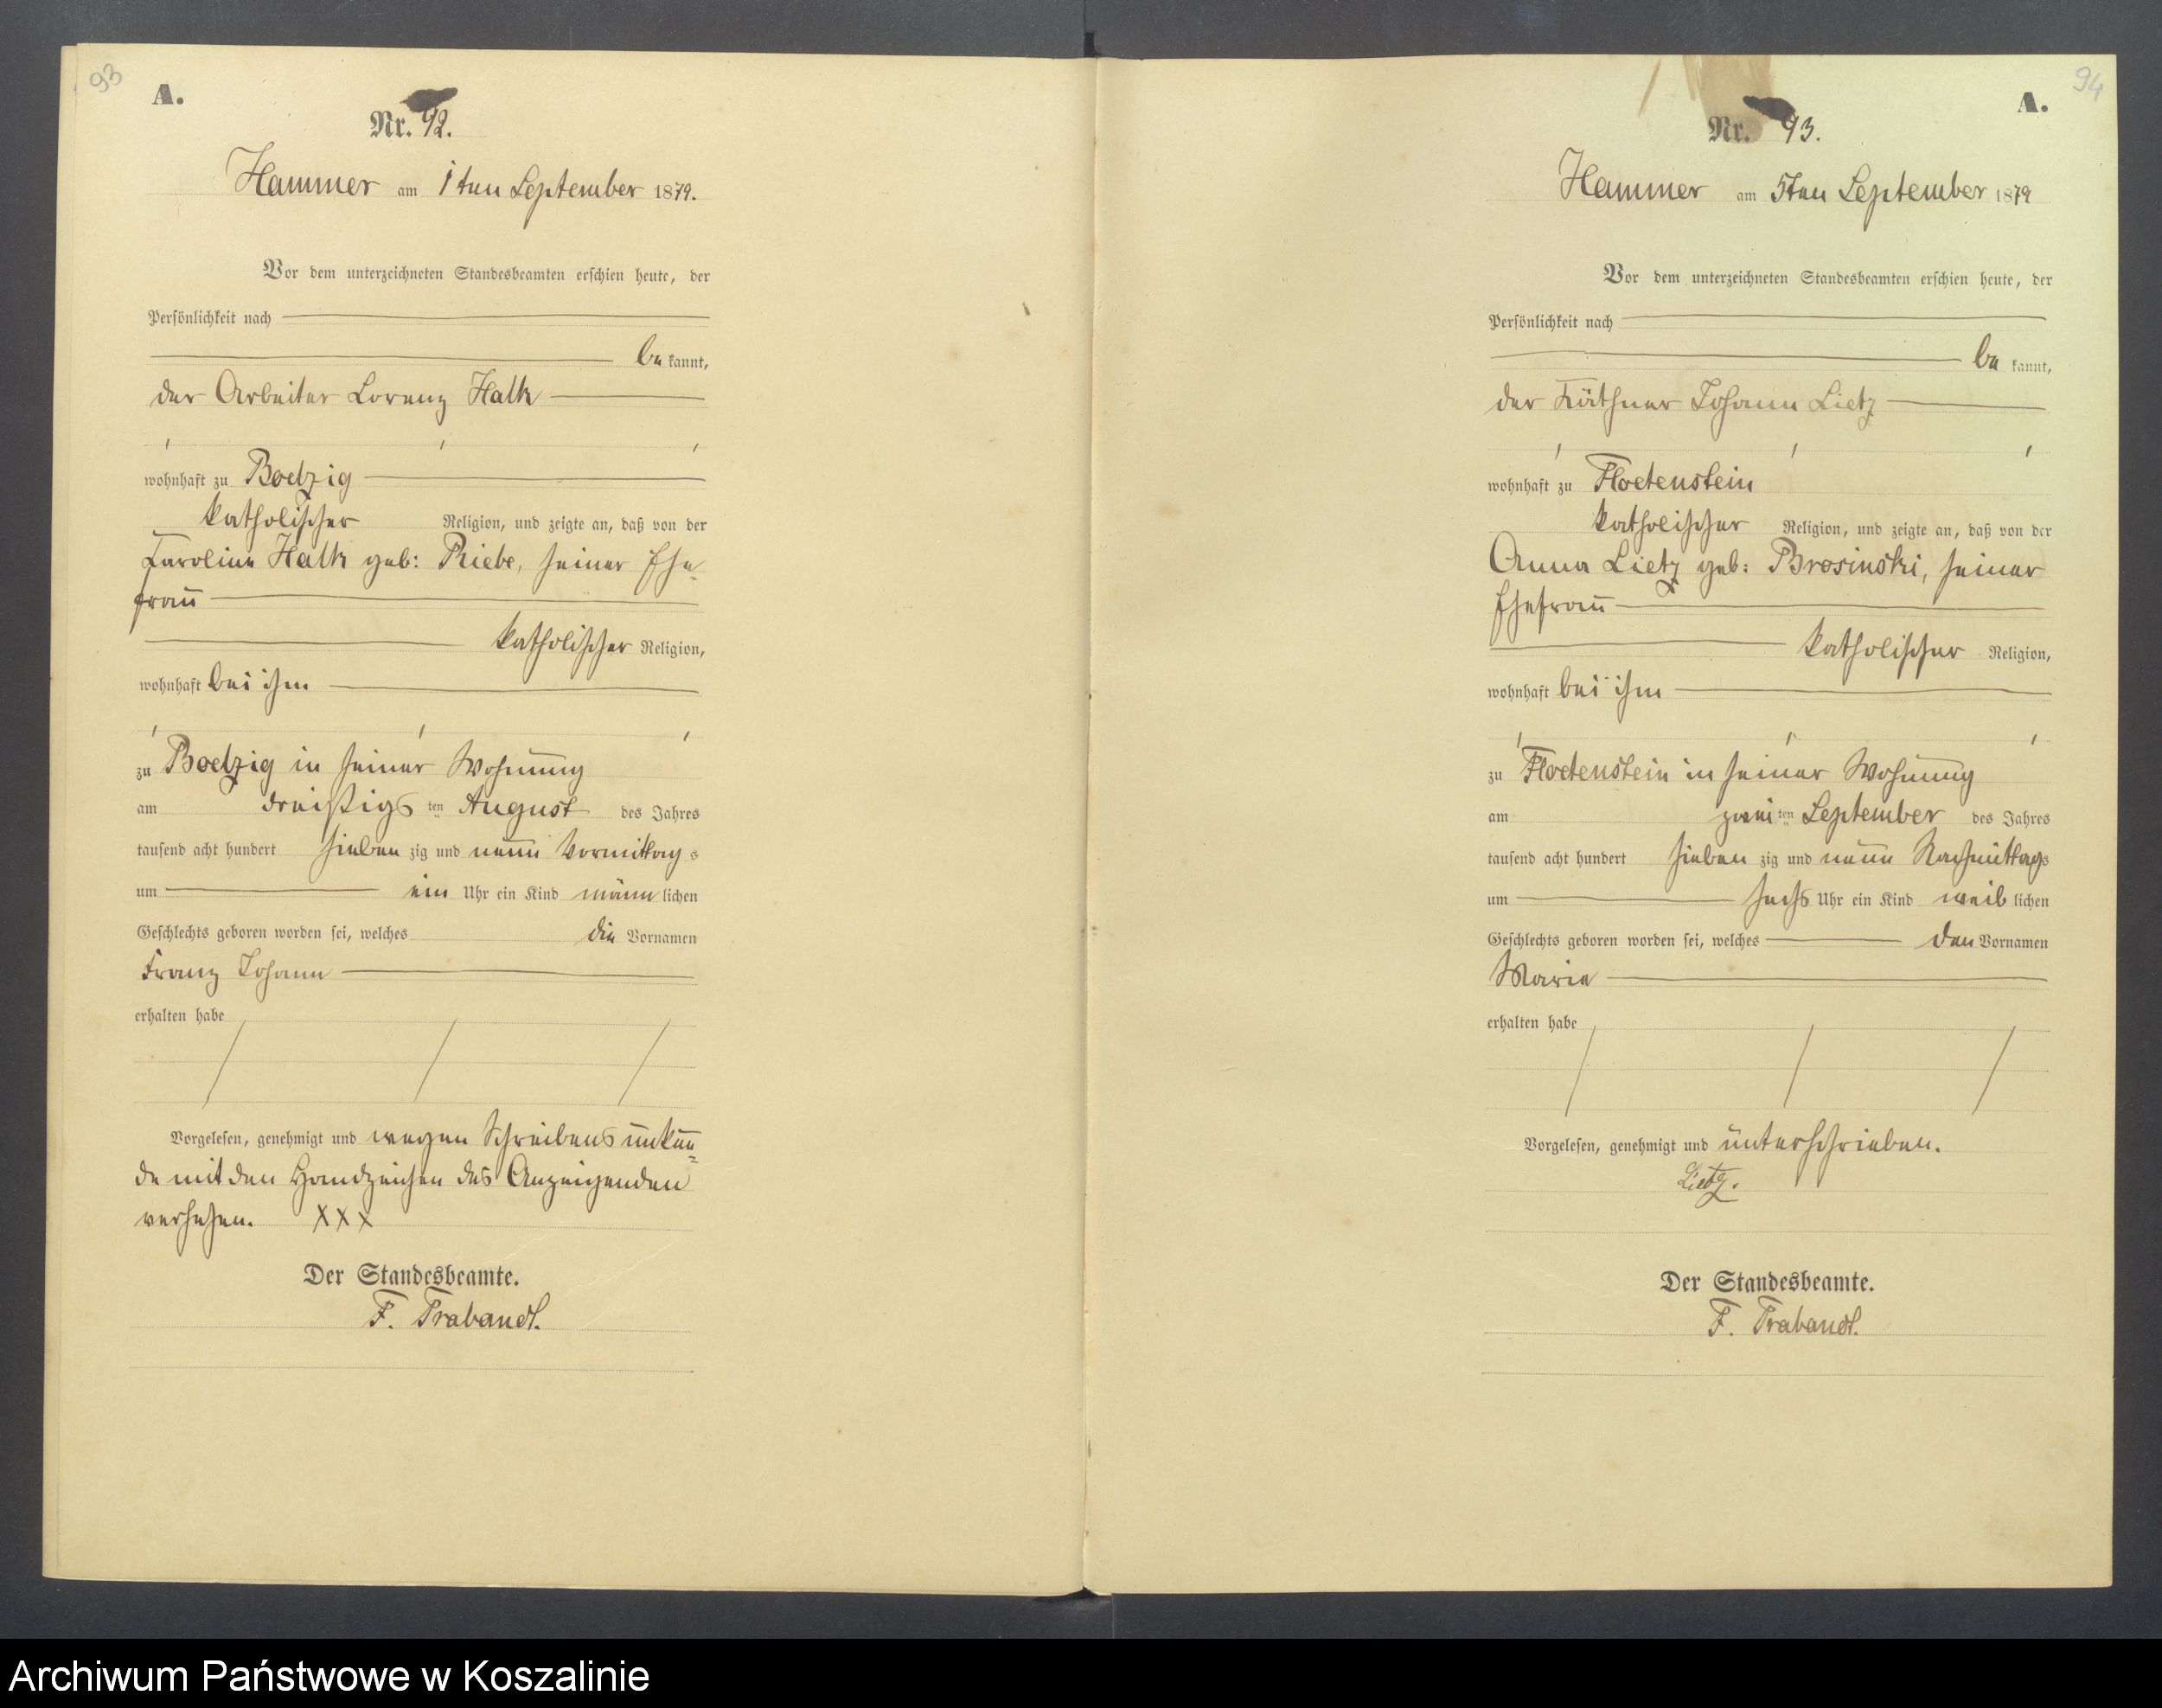 93
A.
Nr. 92.
Hammer am 1ten September 1879.
Vor dem unterzeichneten Standesbeamten erschien heute, der
Persönlichkeit nach
be kannt,
der Arbeiter Lorenz Halk
wohnhaft zu Boelzig
katholischer Religion, und zeigte an, daß von der
Karoline Halk geb: Riebe, seiner Ehe-
frau
katholischer Religion,
wohnhaft bei ihm
zu Boelzig in seiner Wohnung
am dreißigs ten August des Jahres
tausend acht hundert sieben zig und neun Vormittag s
um ein Uhr ein Kind männ lichen
Geschlechts geboren worden sei, welches die Vornamen
Franz Johann
erhalten habe
Vorgelesen, genehmigt und wegen Schreibensunkun=
de mit den Handzeichen des Anzeigenden
versehen. XXX
Der Standesbeamte.
F. Trabandt.
94
A.
Nr. 93.
Hammer am 5ten September 1879
Vor dem unterzeichneten Standesbeamten erschien heute, der
Persönlichkeit nach
be kannt,
der Käthner Johann Lietz
wohnhaft zu Floetenstein
katholischer Religion, und zeigte an, daß von der
Anna Lietz geb: Brosinski, seiner
Ehefrau
katholischer Religion,
wohnhaft bei ihm
zu Floetenstein in seiner Wohnung
am zwei ten September des Jahres
tausend acht hundert sieben zig und neun Nachmittags
um sechs Uhr ein Kind weib lichen
Geschlechts geboren worden sei, welches den Vornamen
Marie
erhalten habe
Vorgelesen, genehmigt und unterschrieben.
Lietz.
Der Standesbeamte.
F. Trabandt.
Archiwum Państwowe w Koszalinie